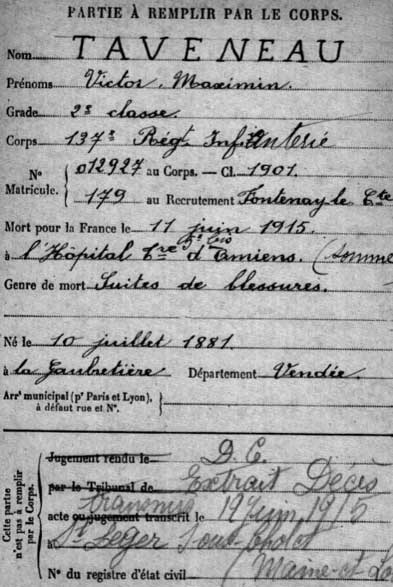 PARTIE À REMPLIR PAR LE CORPS.
Nom TAVENEAU
Prénoms Victor, Maximin.
Grade 2e classe.
Corps 137e Régt Infanterie
N° Matricule. { 012927 au Corps. — Cl. 1901.
179 au Recrutement Fontenay le Cte
Mort pour la France le 11 juin 1915.
à l'Hôpital Tre d'Amiens. (Somme
Genre de mort Suites de blessures.
Né le 10 juillet 1881.
à la Gaubretière Département Vendée.
Arrt municipal (pr Paris et Lyon),
à défaut rue et N°.
Cette partie n'est pas à remplir par le Corps.
Jugement rendu le D. C.
par le Tribunal de Extrait Décès
acte ou jugement transcrit le transmis 19 Juin 1915
à St Léger Sous Cholet
N° du registre d'état civil (Maine-et-Lo